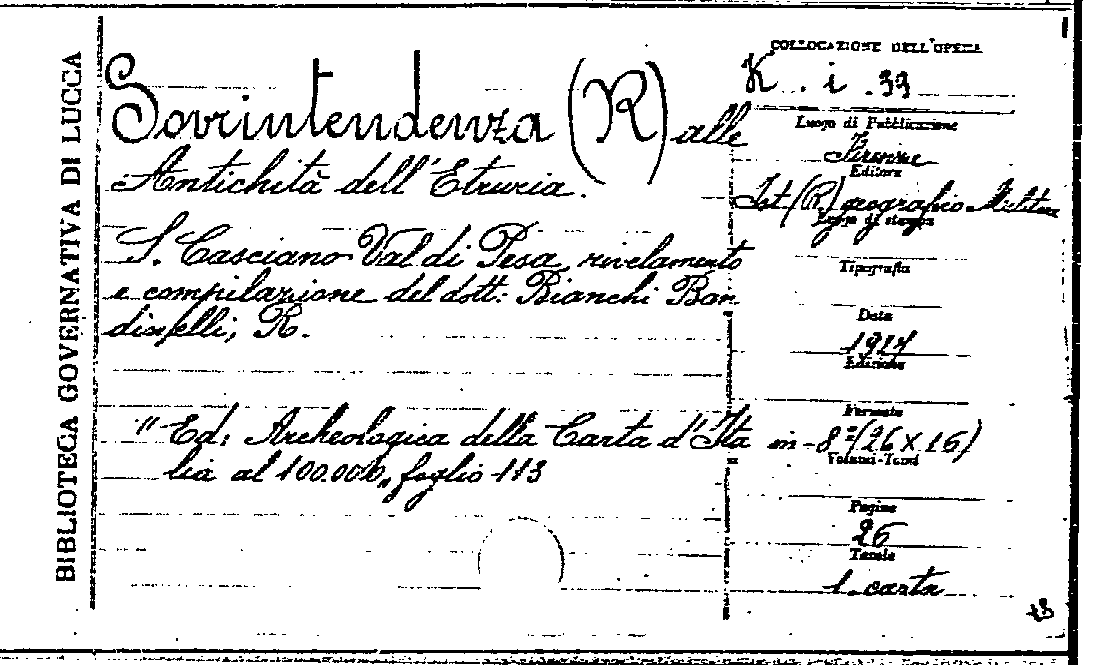 BIBLIOTECA GOVERNATIVA DI LUCCA
Sovrintendenza (R) alle
Antichità dell'Etruria.
S. Casciano Val di Pesa, rivelamento
e compilazione del dott: Bianchi Ban
dinelli, R.
"Ed: Archeologica della Carta d'Ita
lia al 100.000„ foglio 113
COLLOCAZIONE DELL'OPERA
K. i. 33
Luogo di Pubblicazione
Firenze
Editore
Ist. (R.) geografico Militare
Luogo di stampa
Tipografia
Data
Edizione
Formato
in-8º (26 x 16)
Volumi-Tomi
Pagine
26
Tavole
1 carta